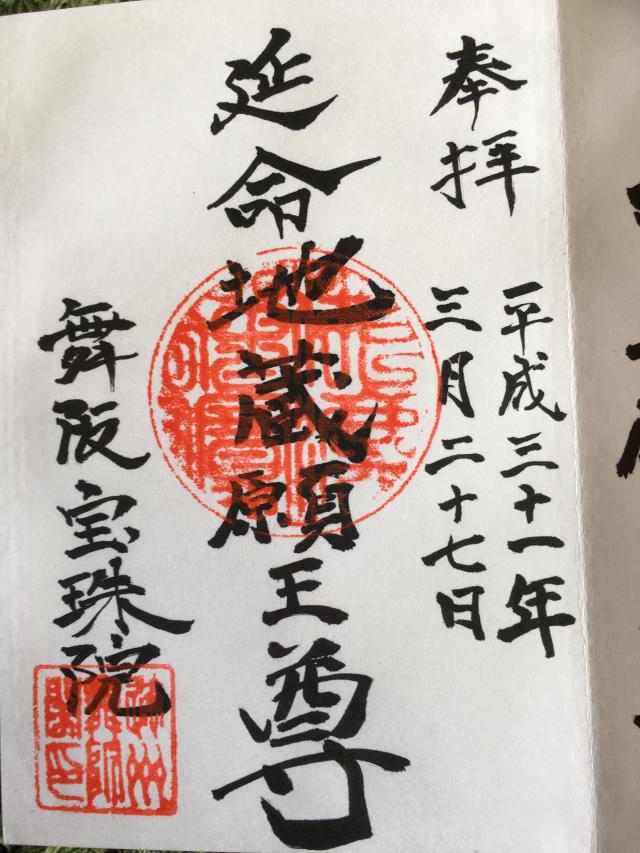 奉拝
平成三十一年
三月二十七日
延命地蔵願王尊
舞阪宝珠院